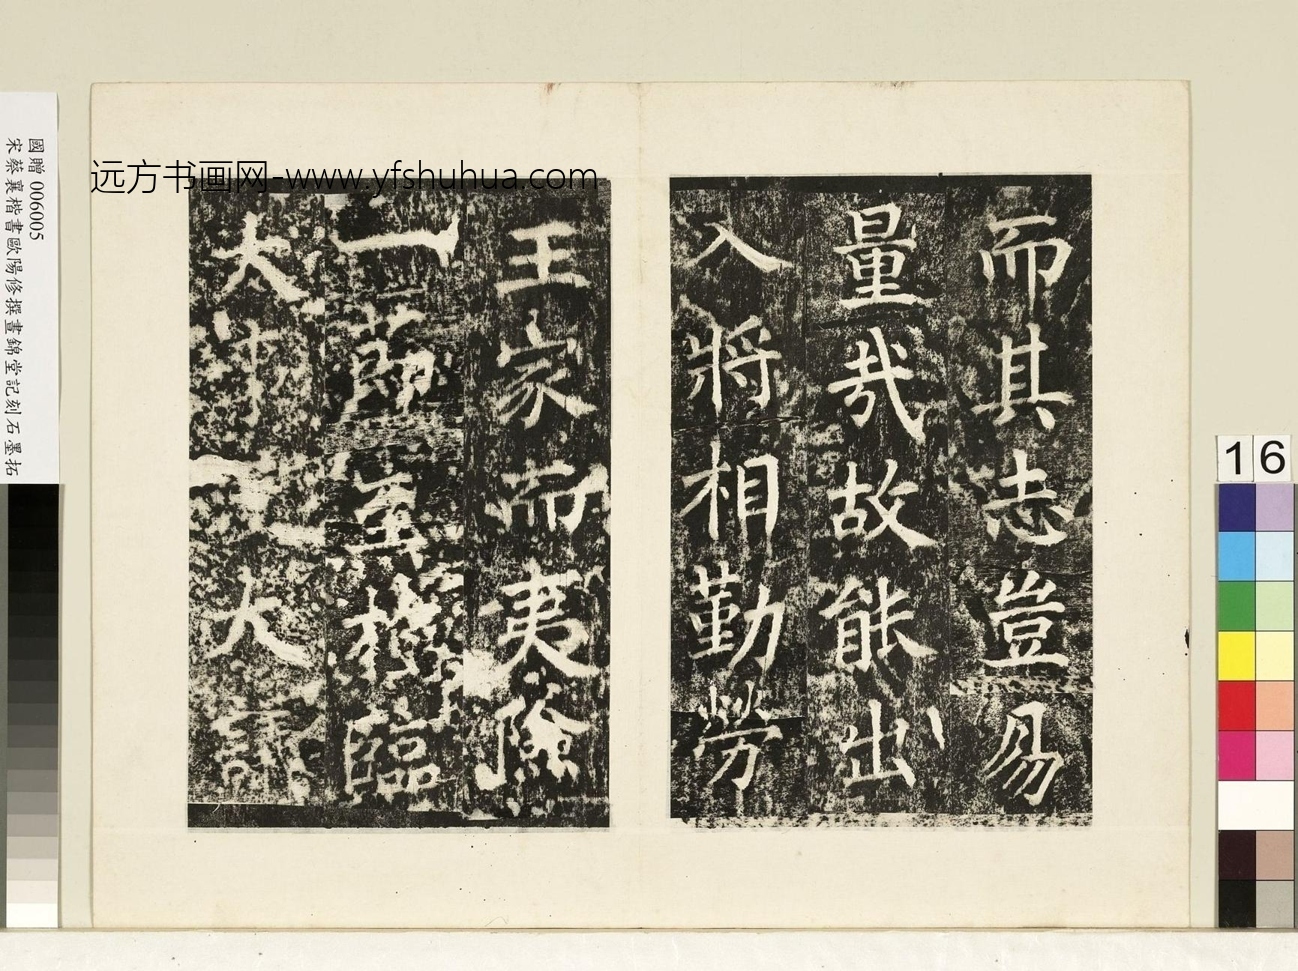 國贈 006005
宋蔡襄楷書歐陽修撰晝錦堂記刻石墨拓
远方书画网-www.yfshuhua.com
而其志豈易
量哉故能出
入將相勤勞
王家而夷險
一節至於臨
大
大
16